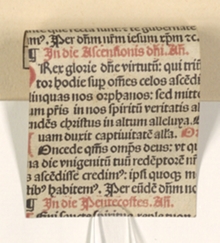 Per dñm nr̃m iesum xp̃m
In die Ascensionis dñi. Añ.
Rex glorie dñe virtutũ: qui
tor hodie sup om̃es celos ascẽdi
linquas nos orphanos: sed mitte
am pr̃is in nos spiritũ veritatis al
endẽs christus in altum alleluya.
uam duxit captiuitatẽ alla.
Oncede q̃s om̃ps deus: vt q
dia vnigenitũ tuũ redẽptorẽ
ascẽdisse credim⁹: ipsi quoq₃ m
tib⁹ habitem⁹. Per eũdẽ dñm
In die Pentecostes. Añ.